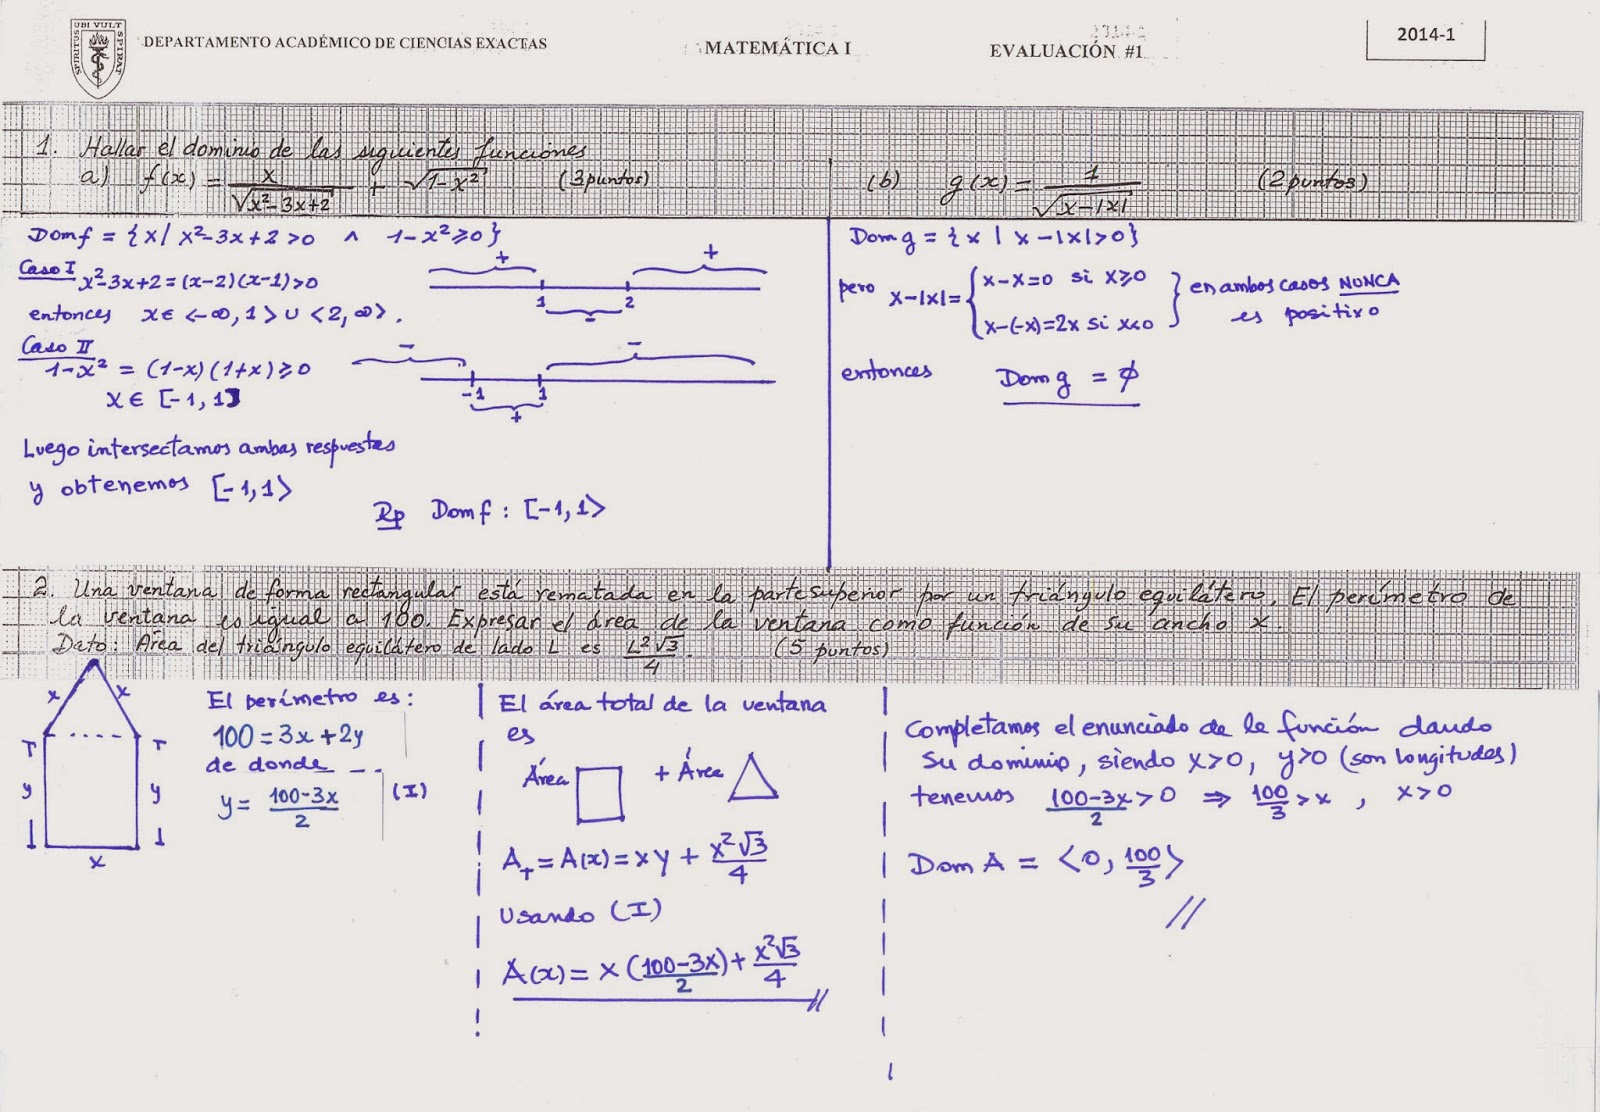 UBI VULT SPIRITUS SPIRAT
DEPARTAMENTO ACADÉMICO DE CIENCIAS EXACTAS
MATEMÁTICA I
EVALUACIÓN #1
2014-1
1. Hallar el dominio de las siguientes funciones
a) f(x) = x/√(x²-3x+2) + √(1-x²) (3 puntos)
(b) g(x) = 1/√(x-|x|) (2 puntos)
Dom f = {x / x²-3x+2 >0 ∧ 1-x² ≥0}
Caso I x²-3x+2 = (x-2)(x-1)>0
entonces x ∈ <-∞,1> ∪ <2,∞>.
+ +
1 2
-
Caso II
1-x² = (1-x)(1+x) ≥0
x ∈ [-1,1]
- -
-1 1
+
Luego intersectamos ambas respuestas
y obtenemos [-1,1>
Rp Dom f : [-1,1>
Dom g = {x | x-|x|>0}
pero x-|x| = { x-x=0 si x≥0
x-(-x)=2x si x<0 }
en ambos casos NUNCA
es positivo
entonces Dom g = ∅
2. Una ventana de forma rectangular está rematada en la parte superior por un triángulo equilátero. El perímetro de
la ventana es igual a 100. Expresar el área de la ventana como función de su ancho x.
Dato: Área del triángulo equilátero de lado L es L²√3/4. (5 puntos)
x x
y y
x
El perímetro es:
100 = 3x + 2y
de donde
y = (100-3x)/2 (I)
El área total de la ventana
es
Área □ + Área △
A_T = A(x) = xy + x²√3/4
Usando (I)
A(x) = x (100-3x)/2 + x²√3/4
Completamos el enunciado de la función dando
su dominio, siendo x>0, y>0 (son longitudes)
tenemos (100-3x)/2 >0 ⇒ 100/3 > x , x>0
Dom A = <0, 100/3>